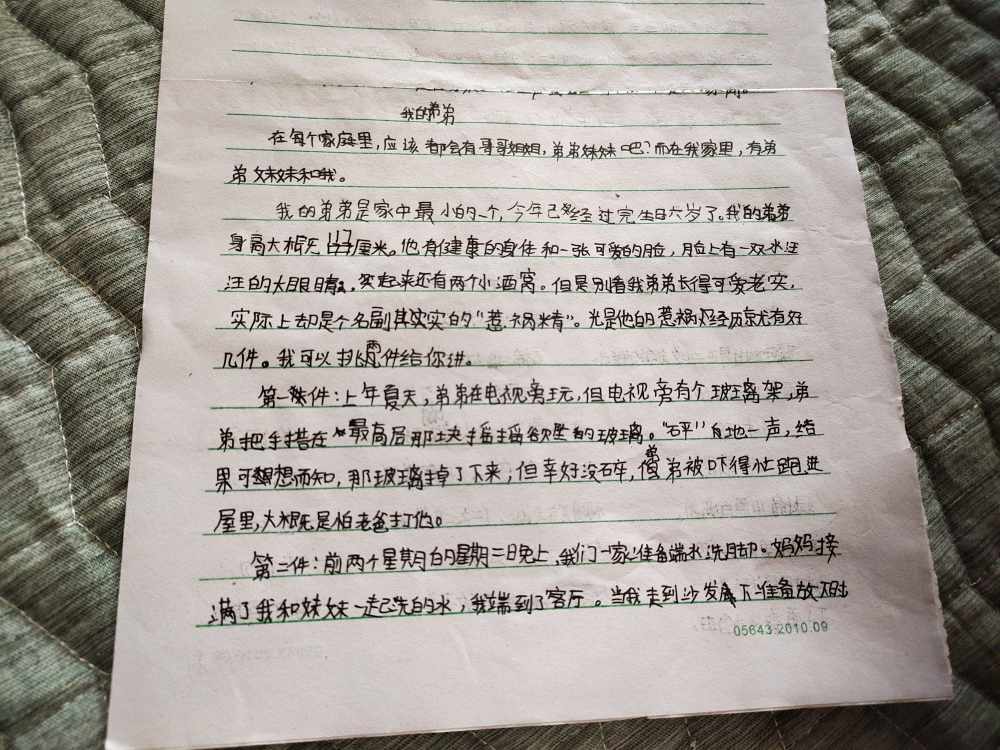 我的弟弟
在每个家庭里,应该都会有哥哥姐姐,弟弟妹妹吧?而在我家里,有弟
弟妹妹和我。
我的弟弟是家中最小的一个,今年已经过完生日六岁了。我的弟弟
身高大概117厘米。他有健康的身体和一张可爱的脸,脸上有一双水汪
汪的大眼睛。笑起来还有两个小酒窝。但是别看我弟弟长得可爱老实,
实际上却是个名副其实的“惹祸精”。光是他的惹祸经历就有好
几件。我可以挑两件给你讲。
第一件:上年夏天,弟弟在电视旁玩,但电视旁有个玻璃架,弟
弟把手搭在最高层那块摇摇欲坠的玻璃。“砰”的一声,结
果可想而知,那玻璃掉了下来,但幸好没碎,弟弟被吓得忙跑进
屋里,大概是怕老爸打他。
第二件:前两个星期的星期二晚上,我们一家准备端水洗脚。妈妈接
满了我和妹妹一起洗的水,我端到了客厅。当我走到沙发下准备放下时
05643·2010.09